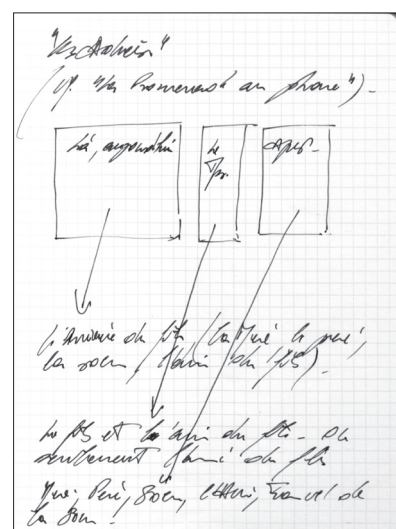 (cf. "La Promenade au phare").
Là, aujourd'hui
Le
Tps.
Après.
L'Arrivée du fils (la Mère, le père,
la soeur, l'ami du fils).
Le fils et l'ami du fils. Ou
seulement l'ami du fils
Mère, Père, Soeur, l'Ami, de
la Soeur.